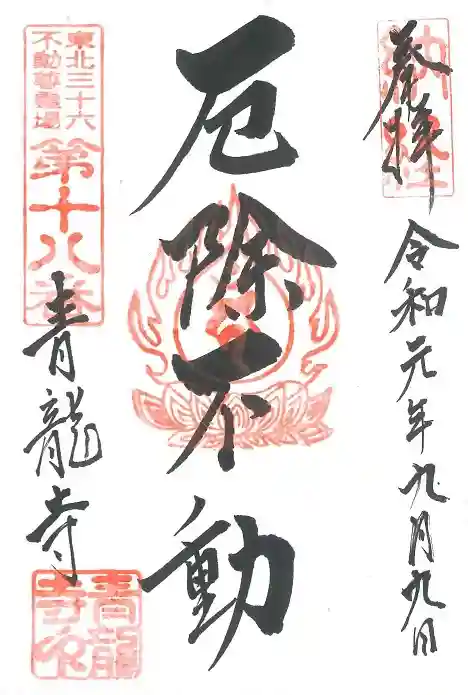 奉拝
納経
令和元年九月九日
厄除不動
東北三十六
不動尊霊場
第十八番
青龍寺
青龍
寺印